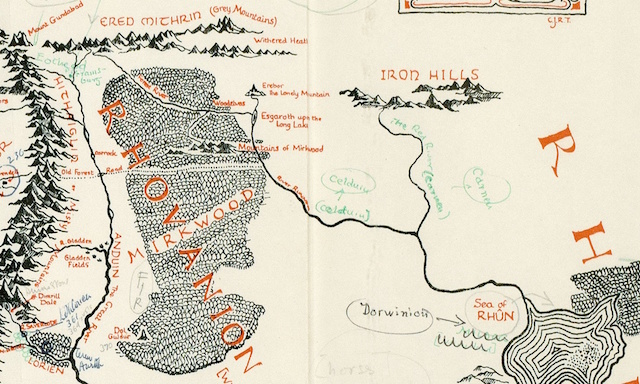 Mount Gundabad
ERED MITHRIN (Grey Mountains)
C.J.R.T.
Withered Heath
IRON HILLS
Erebor
The Lonely Mountain
Woodelves
Esgaroth upon the
Long Lake
The Red River (Carnen)
HITHAEGLIR
Mountains of Mirkwood
RHOVANION
Old Forest
Road
Celduin
(Celduin)
Carnen
River Running
Misty
MIRKWOOD
R
H
R. Gladden
Gladden
Fields
ANDUIN the Great River
FIR
Dimrill
Dale
Dorwinion
Sea of
RHÛN
Dol
Guldur
LORIEN